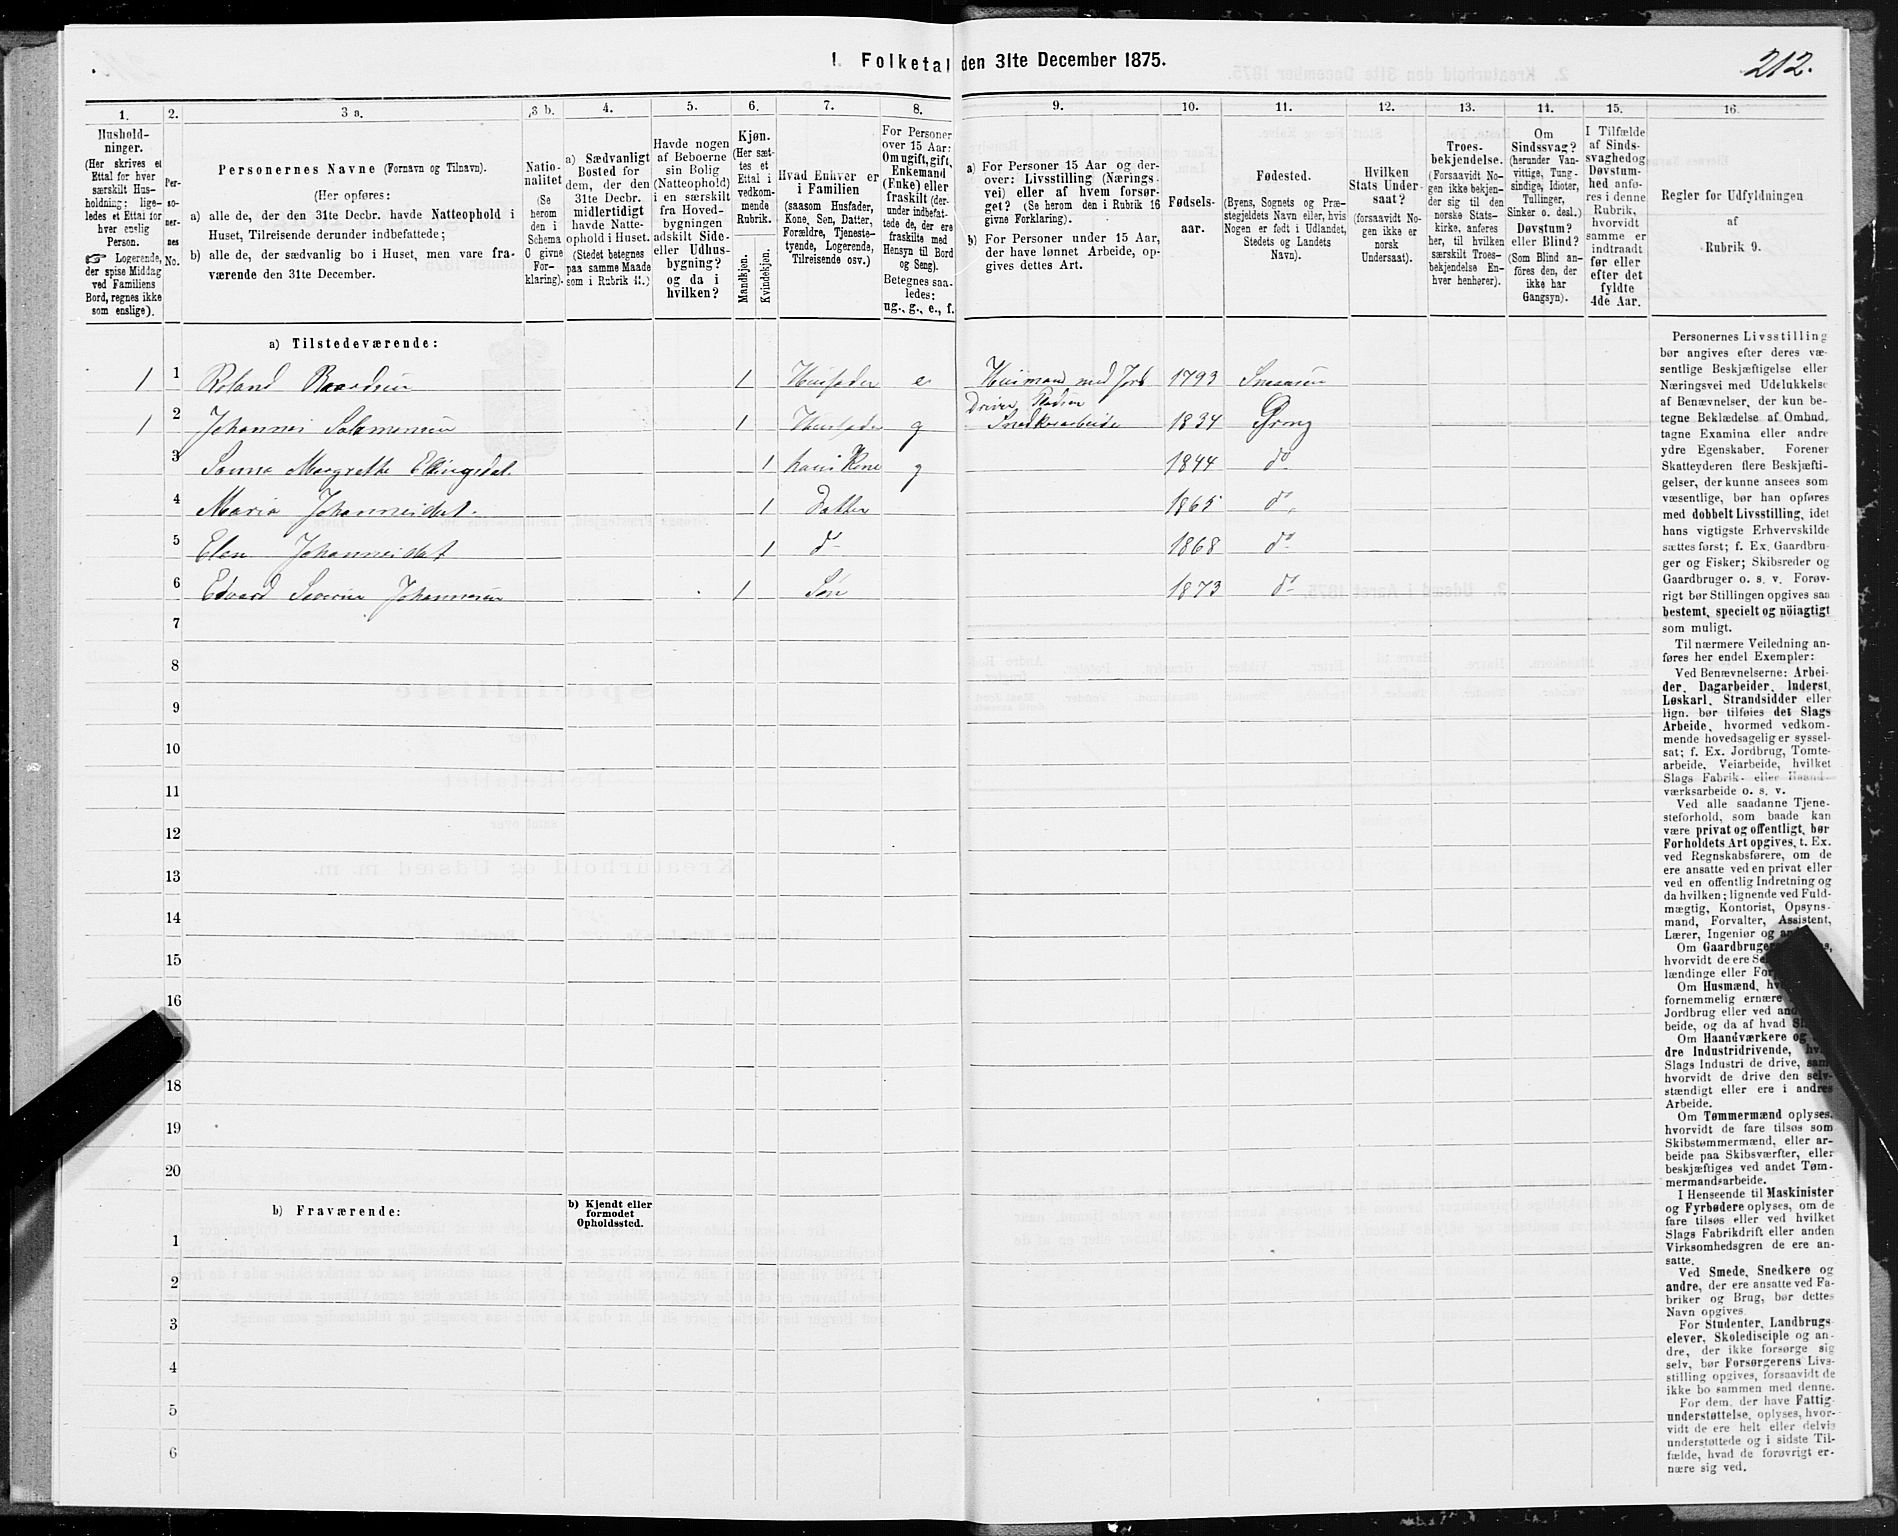 1. Folketal den 31te December 1875.
212.
1.
Hushold-
ninger.
(Her skrives et
Ettal for hver
særskilt Hus-
holdning; lige-
ledes et Ettal for
hver enslig
Person.
☞ Logerende,
der spise Middag
ved Familiens
Bord, regnes ikke
som enslige).
2.
Per-
so-
ner-
nes
No.
3 a.
Personernes Navne (Fornavn og Tilnavn).
(Her opføres:
a) alle de, der den 31te Decbr. havde Natteophold i
Huset, Tilreisende derunder indbefattede;
b) alle de, der sædvanlig bo i Huset, men vare fra-
værende den 31te December.
3 b.
Natio-
nalitet
(Se
herom
den i
Schema
O givne
For-
klaring).
4.
a) Sædvanligt
Bosted for
dem, der den
31te Decbr.
midlertidigt
havde Natte-
ophold i Huset.
(Stedet betegnes
paa samme Maade
som i Rubrik 11.)
5.
Havde nogen
af Beboerne
sin Bolig
(Natteophold)
i en særskilt
fra Hoved-
bygningen
adskilt Side-
eller Udhus-
bygning?
og da i
hvilken?
6.
Kjøn.
(Her sæt-
tes et
Ettal i
vedkom-
mende
Rubrik.
Mandkjøn.
Kvindekjøn.
7.
Hvad Enhver er
i Familien
(saasom Husfader,
Kone, Søn, Datter,
Forældre, Tjeneste-
tyende, Logerende,
Tilreisende osv.)
8.
For Personer
over 15 Aar:
Om ugift, gift,
Enkemand
(Enke) eller
fraskilt (der-
under indbefat-
tede de, der ere
fraskilte med
Hensyn til Bord
og Seng).
Betegnes saa-
ledes:
ug., g., e., f.
9.
a) For Personer 15 Aar og der-
over: Livsstilling (Nærings-
vei) eller af hvem forsør-
get? (Se herom den i Rubrik 16
givne Forklaring).
b) For Personer under 15 Aar,
der have lønnet Arbeide, op-
gives dettes Art.
10.
Fødsels-
aar.
11.
Fødested.
(Byens, Sognets og Præ-
stegjeldets Navn eller, hvis
Nogen er født i Udlandet,
Stedets og Landets
Navn).
12.
Hvilken
Stats Under-
saat?
(forsaavidt No-
gen ikke er
norsk
Undersaat).
13.
Troes-
bekjendelse.
(Forsaavidt No-
gen ikke bekjen-
der sig til den
norske Stats-
kirke, anføres
her, til hvilken
særskilt Troes-
bekjendelse En-
hver henhører).
14.
Om
Sindssvag?
(herunder Van-
vittige, Tung-
sindige, Idioter,
Tullinger,
Sinker o. desl.)
Døvstum?
eller Blind?
(Som Blind an-
føres den, der
ikke har
Gangsyn).
15.
I Tilfælde
af Sinds-
svaghed og
Døvstum-
hed anfø-
res i denne
Rubrik,
hvorvidt
samme er
indtraadt
før eller
efter det
fyldte
4de Aar.
16.
Regler for Udfyldningen
af
Rubrik 9.
a) Tilstedeværende:
1 1 Roland Baardsen 1 Husfader e Husmand med Jord 1793 Snaasen
1 2 Johannes Salamonsen 1 Husfader g Driver
Snedkerarbeide 1834 Grong
3 Margrethe 1 hans Kone g 1844 do
4 Maria Johannesdat. 1 Datter 1865 do
5 Elen Johannesdat 1 do 1868 do
6 Edvard Johannesen 1 Søn 1873 do
7
8
9
10
11
12
13
14
15
16
18
19
20
b) Fraværende:
b) Kjendt eller
formodet
Opholdssted.
1
2
3
4
5
6
Personernes Livsstilling
bør angives efter deres væ-
sentlige Beskjæftigelse eller
Næringsvei med Udelukkelse
af Benævnelser, der kun be-
tegne Beklædelse af Ombud,
tagne Examina eller andre
ydre Egenskaber. Forener
Skatteyderen flere Beskjæfti-
gelser, der kunne ansees som
væsentlige, bør han opføres
med dobbelt Livsstilling, idet
hans vigtigste Erhvervskilde
sættes først; f. Ex. Gaardbru-
ger og Fisker; Skibsreder og
Gaardbruger o. s. v. Forøv-
rigt bør Stillingen opgives saa
bestemt, specielt og nöiagtigt
som muligt.
Til nærmere Veiledning an-
føres her endel Exempler:
Ved Benævnelserne: Arbei-
der, Dagarbeider, Inderst,
Løskarl, Strandsidder eller
lign. bør tilføies det Slags
Arbeide, hvormed vedkom-
mende hovedsagelig er syssel-
sat; f. Ex. Jordbrug, Tomte-
arbeide, Veiarbeide, hvilket
Slags Fabrik- eller Haand-
værksarbeide o. s. v.
Ved alle saadanne Tjene-
steforhold, som baade kan
være privat og offentligt, bør
Forholdets Art opgives, t. Ex.
ved Regnskabsførere, om de
ere ansatte ved en privat eller
ved en offentlig Indretning og
da hvilken; lignende ved Fuld-
mægtig, Kontorist, Opsyns-
mand, Forvalter, Assistent,
Lærer, Ingeniør og
Om
hvorvidt de ere
lændinge eller
Om Husmænd,
fornemmelig ernære
Jordbrug eller ved
beide, og da af hvad
Om Haandværkere og
dre Industridrivende,
Slags Industri de drive,
hvorvidt de drive den selv-
stændigt eller ere i andres
Arbeide.
Om Tømmermænd oplyses,
hvorvidt de fare tilsøs som
Skibstømmermænd, eller ar-
beide paa Skibsværfter, eller
beskjæftiges ved andet Tøm-
mermandsarbeide.
I Henseende til Maskinister
og Fyrbødere oplyses, om de
fare tilsøs eller ved hvilket
Slags Fabrikdrift eller anden
Virksomhedsgren de ere an-
satte.
Ved Smede, Snedkere og
andre, der ere ansatte ved Fa-
briker og Brug, bør dettes
Navn opgives.
For Studenter, Landbrugs-
elever, Skoledisciple og an-
dre, der ikke forsørge sig
selv, bør Forsørgerens Livs-
stilling opgives, forsaavidt de
ikke bo sammen med denne.
For dem, der have Fattig-
understøttelse, oplyses, hvor-
vidt de ere helt eller delvis
understøttede og i sidste Til-
fælde, hvad de forøvrigt er-
nære sig ved.